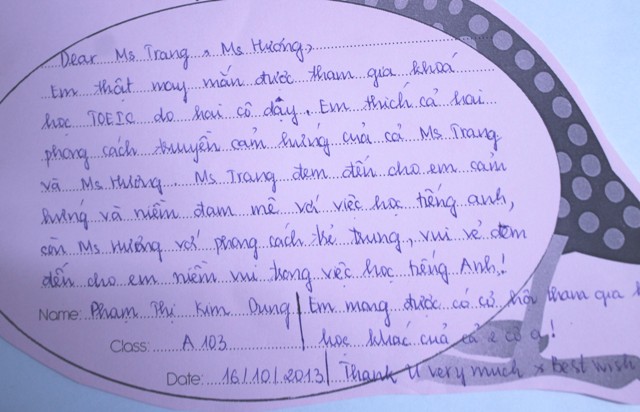 Dear Ms Trang, Ms Hương,
Em thật may mắn được tham gia khoá
học TOEIC do hai cô dậy. Em thích cả hai
phong cách truyền cảm hứng của cả Ms Trang
và Ms Hương. Ms Trang đem đến cho em cảm
hứng và niềm đam mê với việc học tiếng anh,
còn Ms Hương với phong cách trẻ trung, vui vẻ đem
đến cho em niềm vui trong việc học tiếng Anh!
Name: Phạm Thị Kim Dung
Class: A 103
Date: 16/10/2013
Em mong được có cơ hội tham gia
học khác của cả 2 cô ạ!
Thank U very much & Best wish